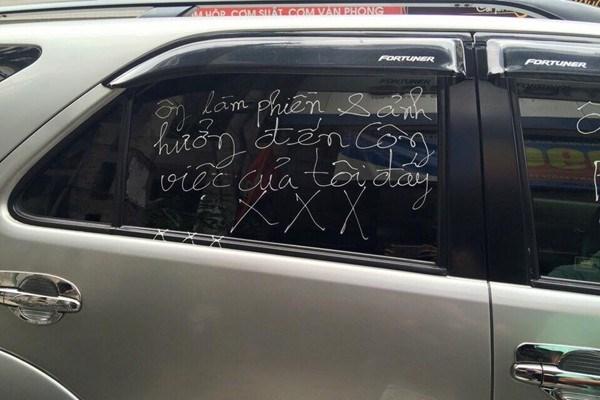 HỘP, CƠM SUẤT, CƠM VĂN PHÒNG
FORTUNER
FORTUNER
ôg làm phiền & ảnh
hưởng đến côg
việc của tôi đấy
X X X
x x x